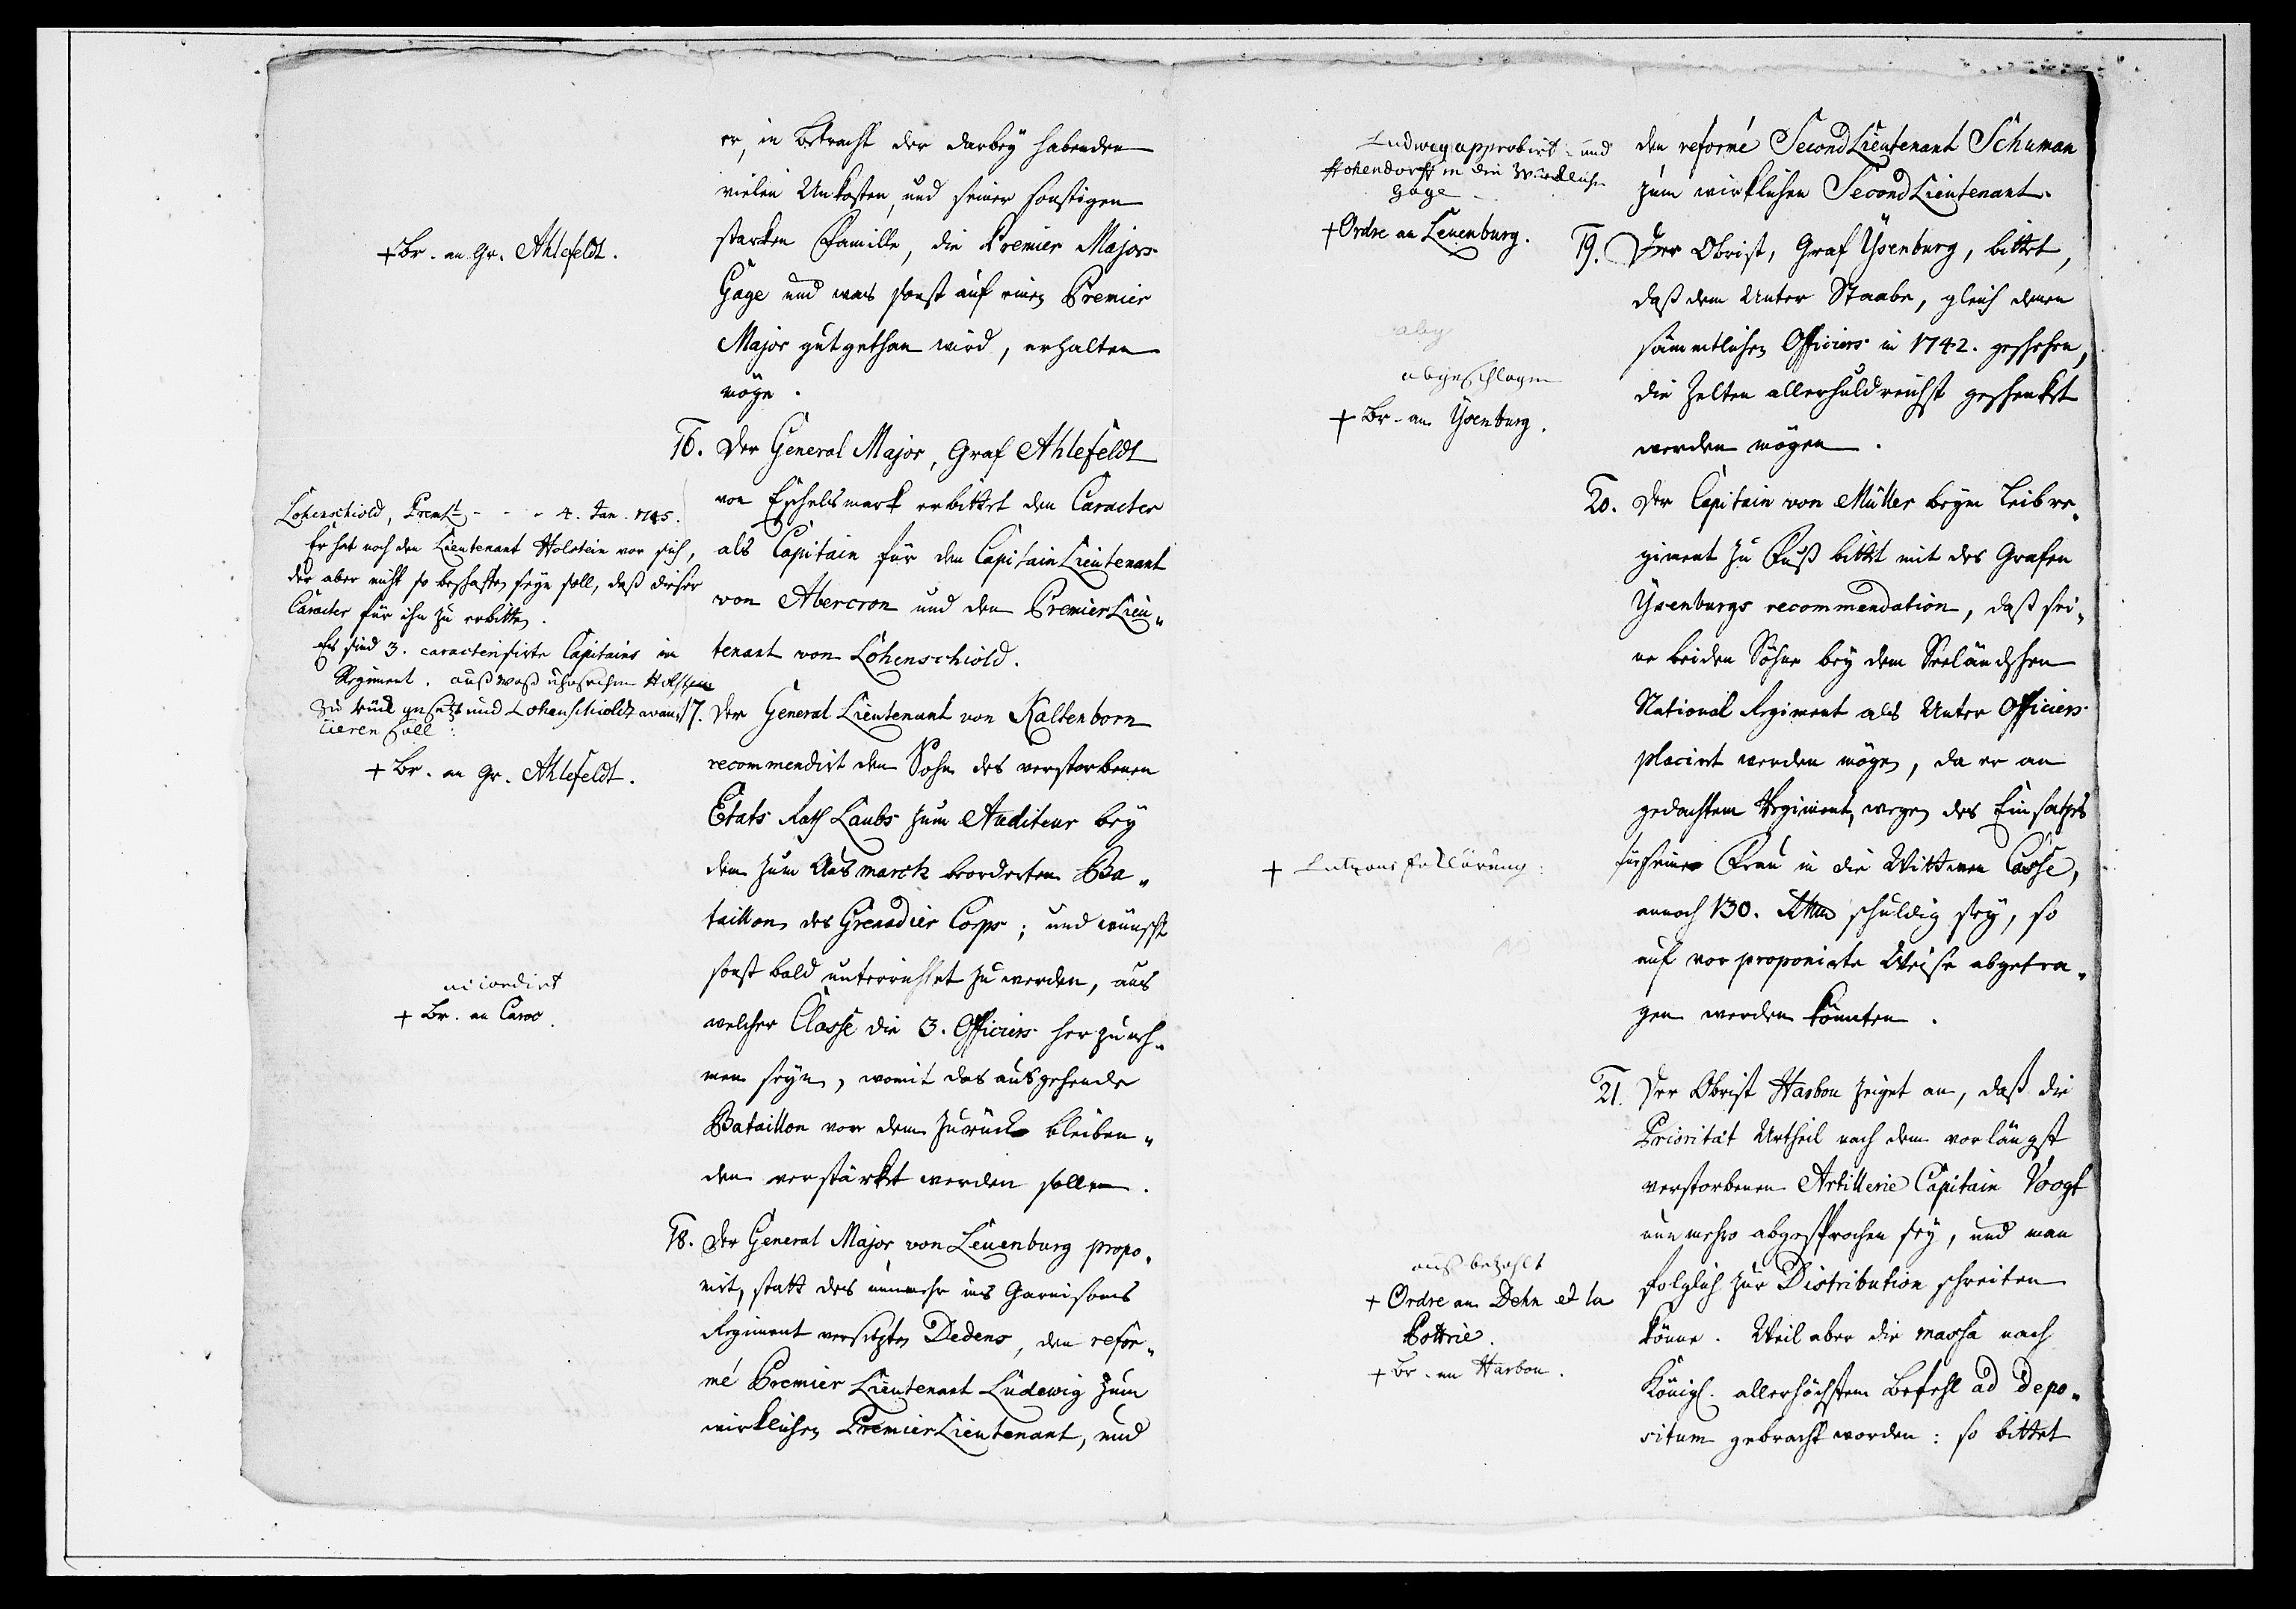 er, in Betracht der darbey habenden
vielen Unkosten, und seiner sonstigen
starken Famille, die Premier Majors
Gage und was sonst auf einen Premier
Major gutgethan wird, erhalten
möge.
+ Br. an Gr. Ahlefeldt.
16. Der General Major, Graf Ahlefeldt
von Eschelsmark erbittet den Caracter
als Capitain für den CapitainLieutenant
von Abercron und den PremierLieu„
tenant von Löhenschiold.
Löhenschiold, Premt. - - - 4. Jan. 1745.
Er hat noch den Lieutenant Holstein vor sich,
der aber nicht so beschaffen seyn soll, daß dieser
Caracter für ihn zu erbitten.
Es sind 3. caracterisirte Capitains im
Regiment. auß waß uhrsachen Holstein
zu rück gesetzt und Lohenschioldt avan
cieren soll:
+ Br. an Gr. Ahlefeldt.
17. Der General Lieutenant von Kaltenborn
recommendirt den Sohn des verstorbenen
Etats Rath Laubs zum Auditeur bey
dem zum Ausmarch beorderten Ba„
taillon des Grenadier Corps; und wünscht
sonst bald unterrichtet zu werden, aus
welcher Classe die 3. Officiers herzuneh„
men seyn, womit das ausgehende
Bataillon vor dem zurück bleiben„
den verstärket werden sollen.
accordirt
+ Br. an Caroc.
18. Der General Major von Leuenburg propo„
nirt, statt des nunmehr ins Garnisons
Regiment versetzten Dedens, den refor„
mé Premier Lieutenant Ludewig zum
wirklichen PremierLieutenant, und
den reformé SecondLieutenant Schuman
zum wirklichen SecondLieutenant.
Ludweg approbirt und
Hohendorff in die Würckliche
gage
+ Ordre an Leuenburg.
19. Der Obrist, Graf Ysenburg, bittet,
daß dem Unter Staabe, gleich denen
sämmtlichen Officiers in 1742. geschehen,
die Zelten allerhuldreichst geschenket
werden mögen.
abgeschlagen
+ Br. an Ysenburg.
20. Der Capitain von Müller beym Leibre„
giment zu Fuß bittet mit des Grafen
Ysenburgs recommendation, daß sei„
ne beiden Söhne bey dem Seeländschen
National Regiment als Unter Officiers
placirt werden mögen, da er an
gedachtem Regiment, wegen des Einsatzes
für seine Frau in die Wittwen Casse,
annoch 130. Rthlr schuldig sey, so
auf vor proponirte Weise abgetra„
gen werden könnten.
+ Lutzous Erklärung:
21. Der Obrist Harbou zeiget an, daß die
Priorität Urtheil nach dem vorlängst
verstorbenen Artillerie Capitain Voogt
nunmehro abgesprochen sey, und man
folglich zur Distribution schreiten
könne. Weil aber die massa nach
Königl. allerhöchstem Befehl ad depo„
situm gebracht worden: so bittet
auß bezahlt
+ Ordre an Dehn et la
Pottrie.
+ Br. an Harbou.